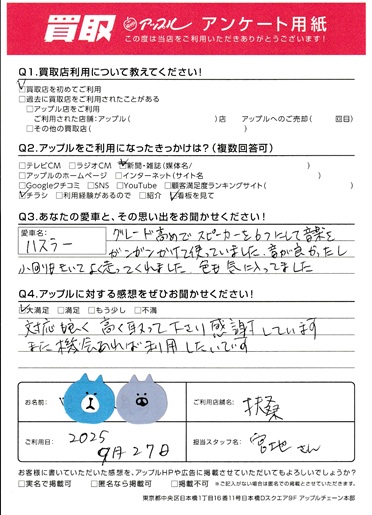 買取 アップル アンケート用紙
この度は当店をご利用いただきありがとうございます！
Q1.買取店利用について教えてください！
☑買取店を初めてご利用
□過去に買取店をご利用されたことがある
□アップル店をご利用
ご利用された店舗:アップル( )店 アップルへのご売却( 回目)
□その他の買取店( )
Q2.アップルをご利用になったきっかけは？(複数回答可)
□テレビCM □ラジオCM ☑新聞・雑誌(媒体名/ )
□アップルのホームページ □インターネット(サイト名 )
□Googleクチコミ □SNS □YouTube □顧客満足度ランキングサイト( )
☑チラシ □利用経験があるので □紹介 ☑看板を見て
Q3.あなたの愛車と、その思い出をお聞かせください！
愛車名:
ハスラー
グレード高めで スピーカーを6つにして音楽を
ガンガンかけて使っていました。音が良かったし
小回りもきいてよく走ってくれました 色も気に入ってました
Q4.アップルに対する感想をぜひお聞かせください！
☑大満足 □満足 □もう少し □不満
対応良く 高く取って下さり感謝しています
また機会あれば利用したいです
お名前:
ご利用店舗名:
扶桑
ご利用日:
2025
9月27日
担当スタッフ名:
宮地さん
お客様に書いていただいた感想を、アップルHPや広告に掲載させていただいてもよろしいでしょうか？
□実名で掲載可 □匿名なら掲載可 □掲載不可 ※ご記入がない場合は匿名での掲載とさせていただきます。
東京都中央区日本橋1丁目16番11号日本橋Dスクエア9F アップルチェーン本部